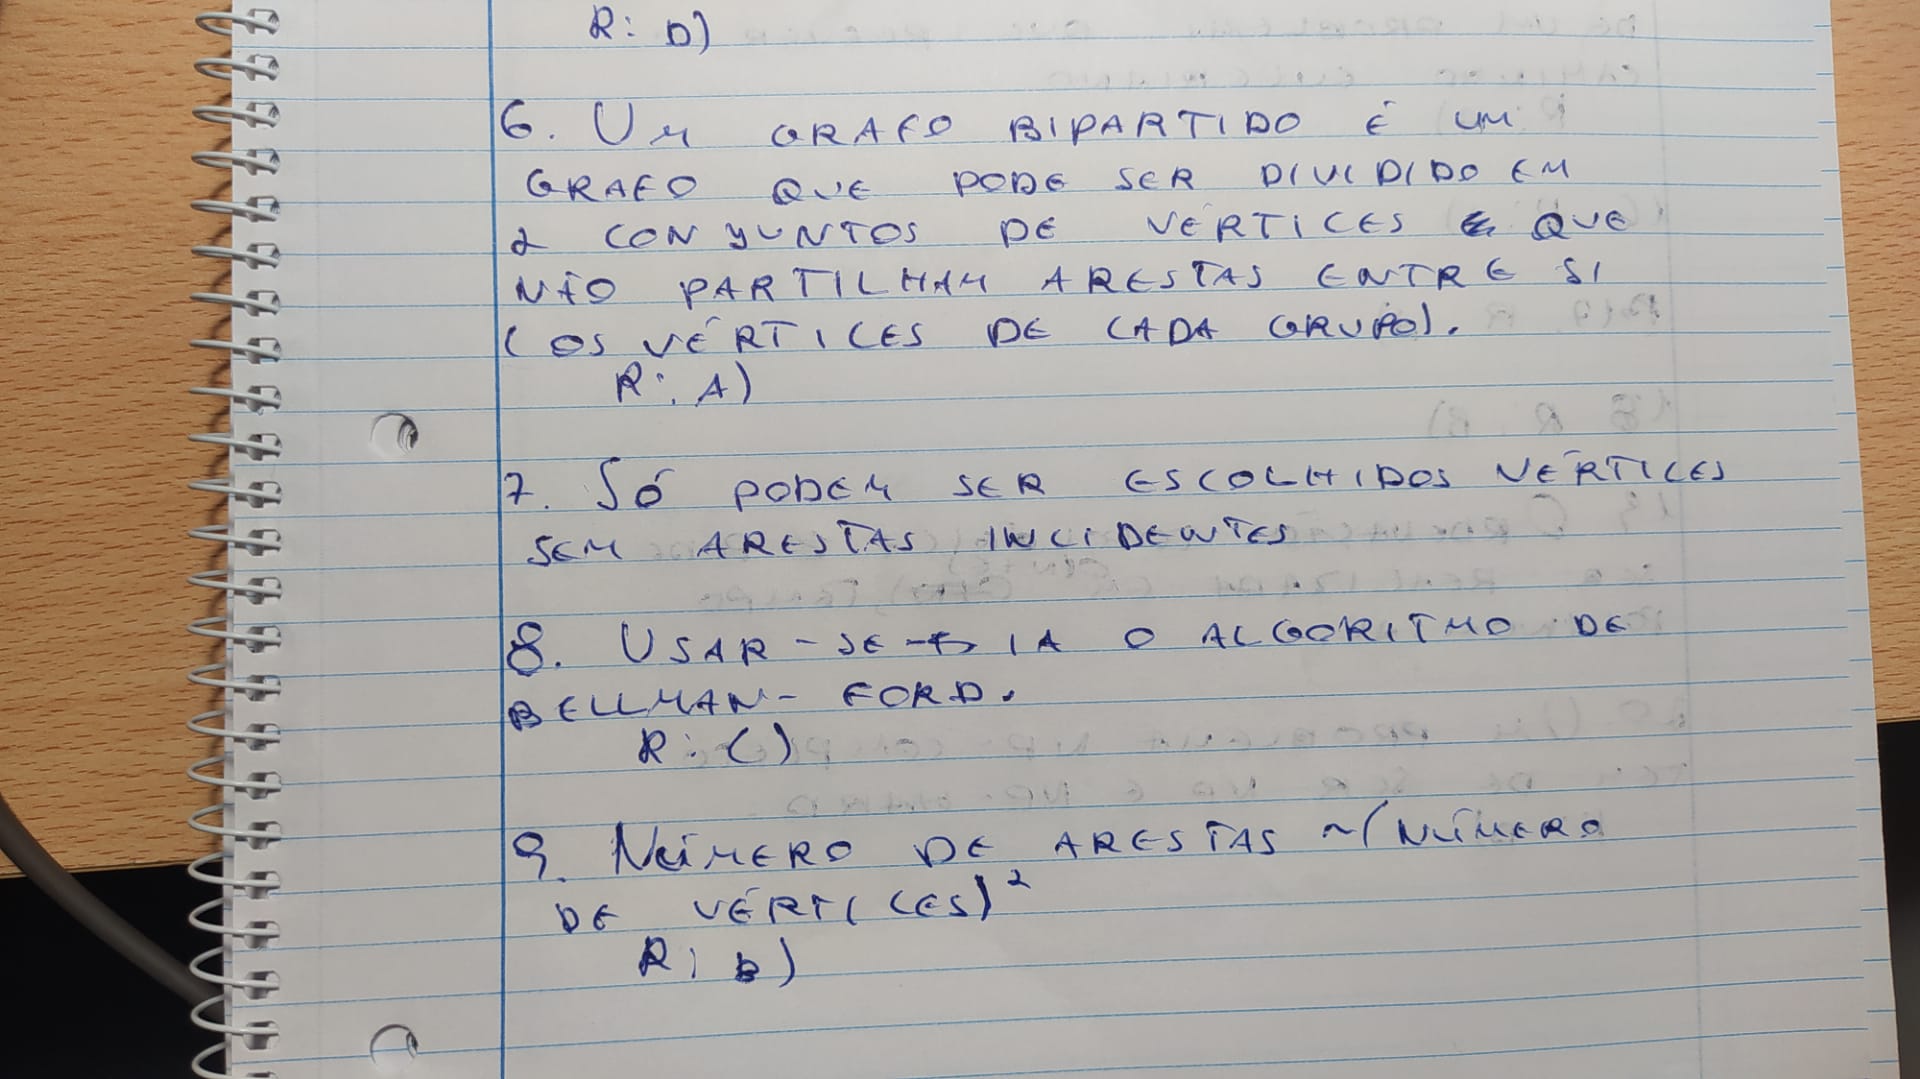 R: D)
6. Um GRAFO BIPARTIDO É UM
GRAFO QUE PODE SER DIVIDIDO EM
2 CONJUNTOS DE VÉRTICES QUE
NÃO PARTILHAM ARESTAS ENTRE SI
(OS VÉRTICES DE CADA GRUPO).
R: A)
7. Só PODEM SER ESCOLHIDOS VÉRTICES
SEM ARESTAS INCIDENTES
8. USAR-SE-IA O ALGORITMO DE
BELLMAN-FORD.
R: C)
9. NÚMERO DE ARESTAS ~(NÚMERO
DE VÉRTICES)²
R: b)